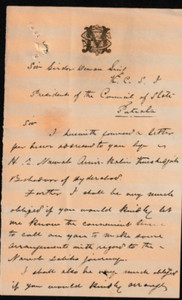 Sir Sirdar Dewa Sing
K. C. S. I
President of the Council of State
Patiala
Sir
I herewith forward a letter
per favor addressed to you by
H. E. Nawab Amir Kabir
Bahadoor of Hyderabad
Further I shall be very much
obliged if you would kindly let
me know the convenient time
to call on you to make some
arrangements with regard to the
Nawab Sahibs journey.
I shall also be very much obliged
if you would kindly arrange